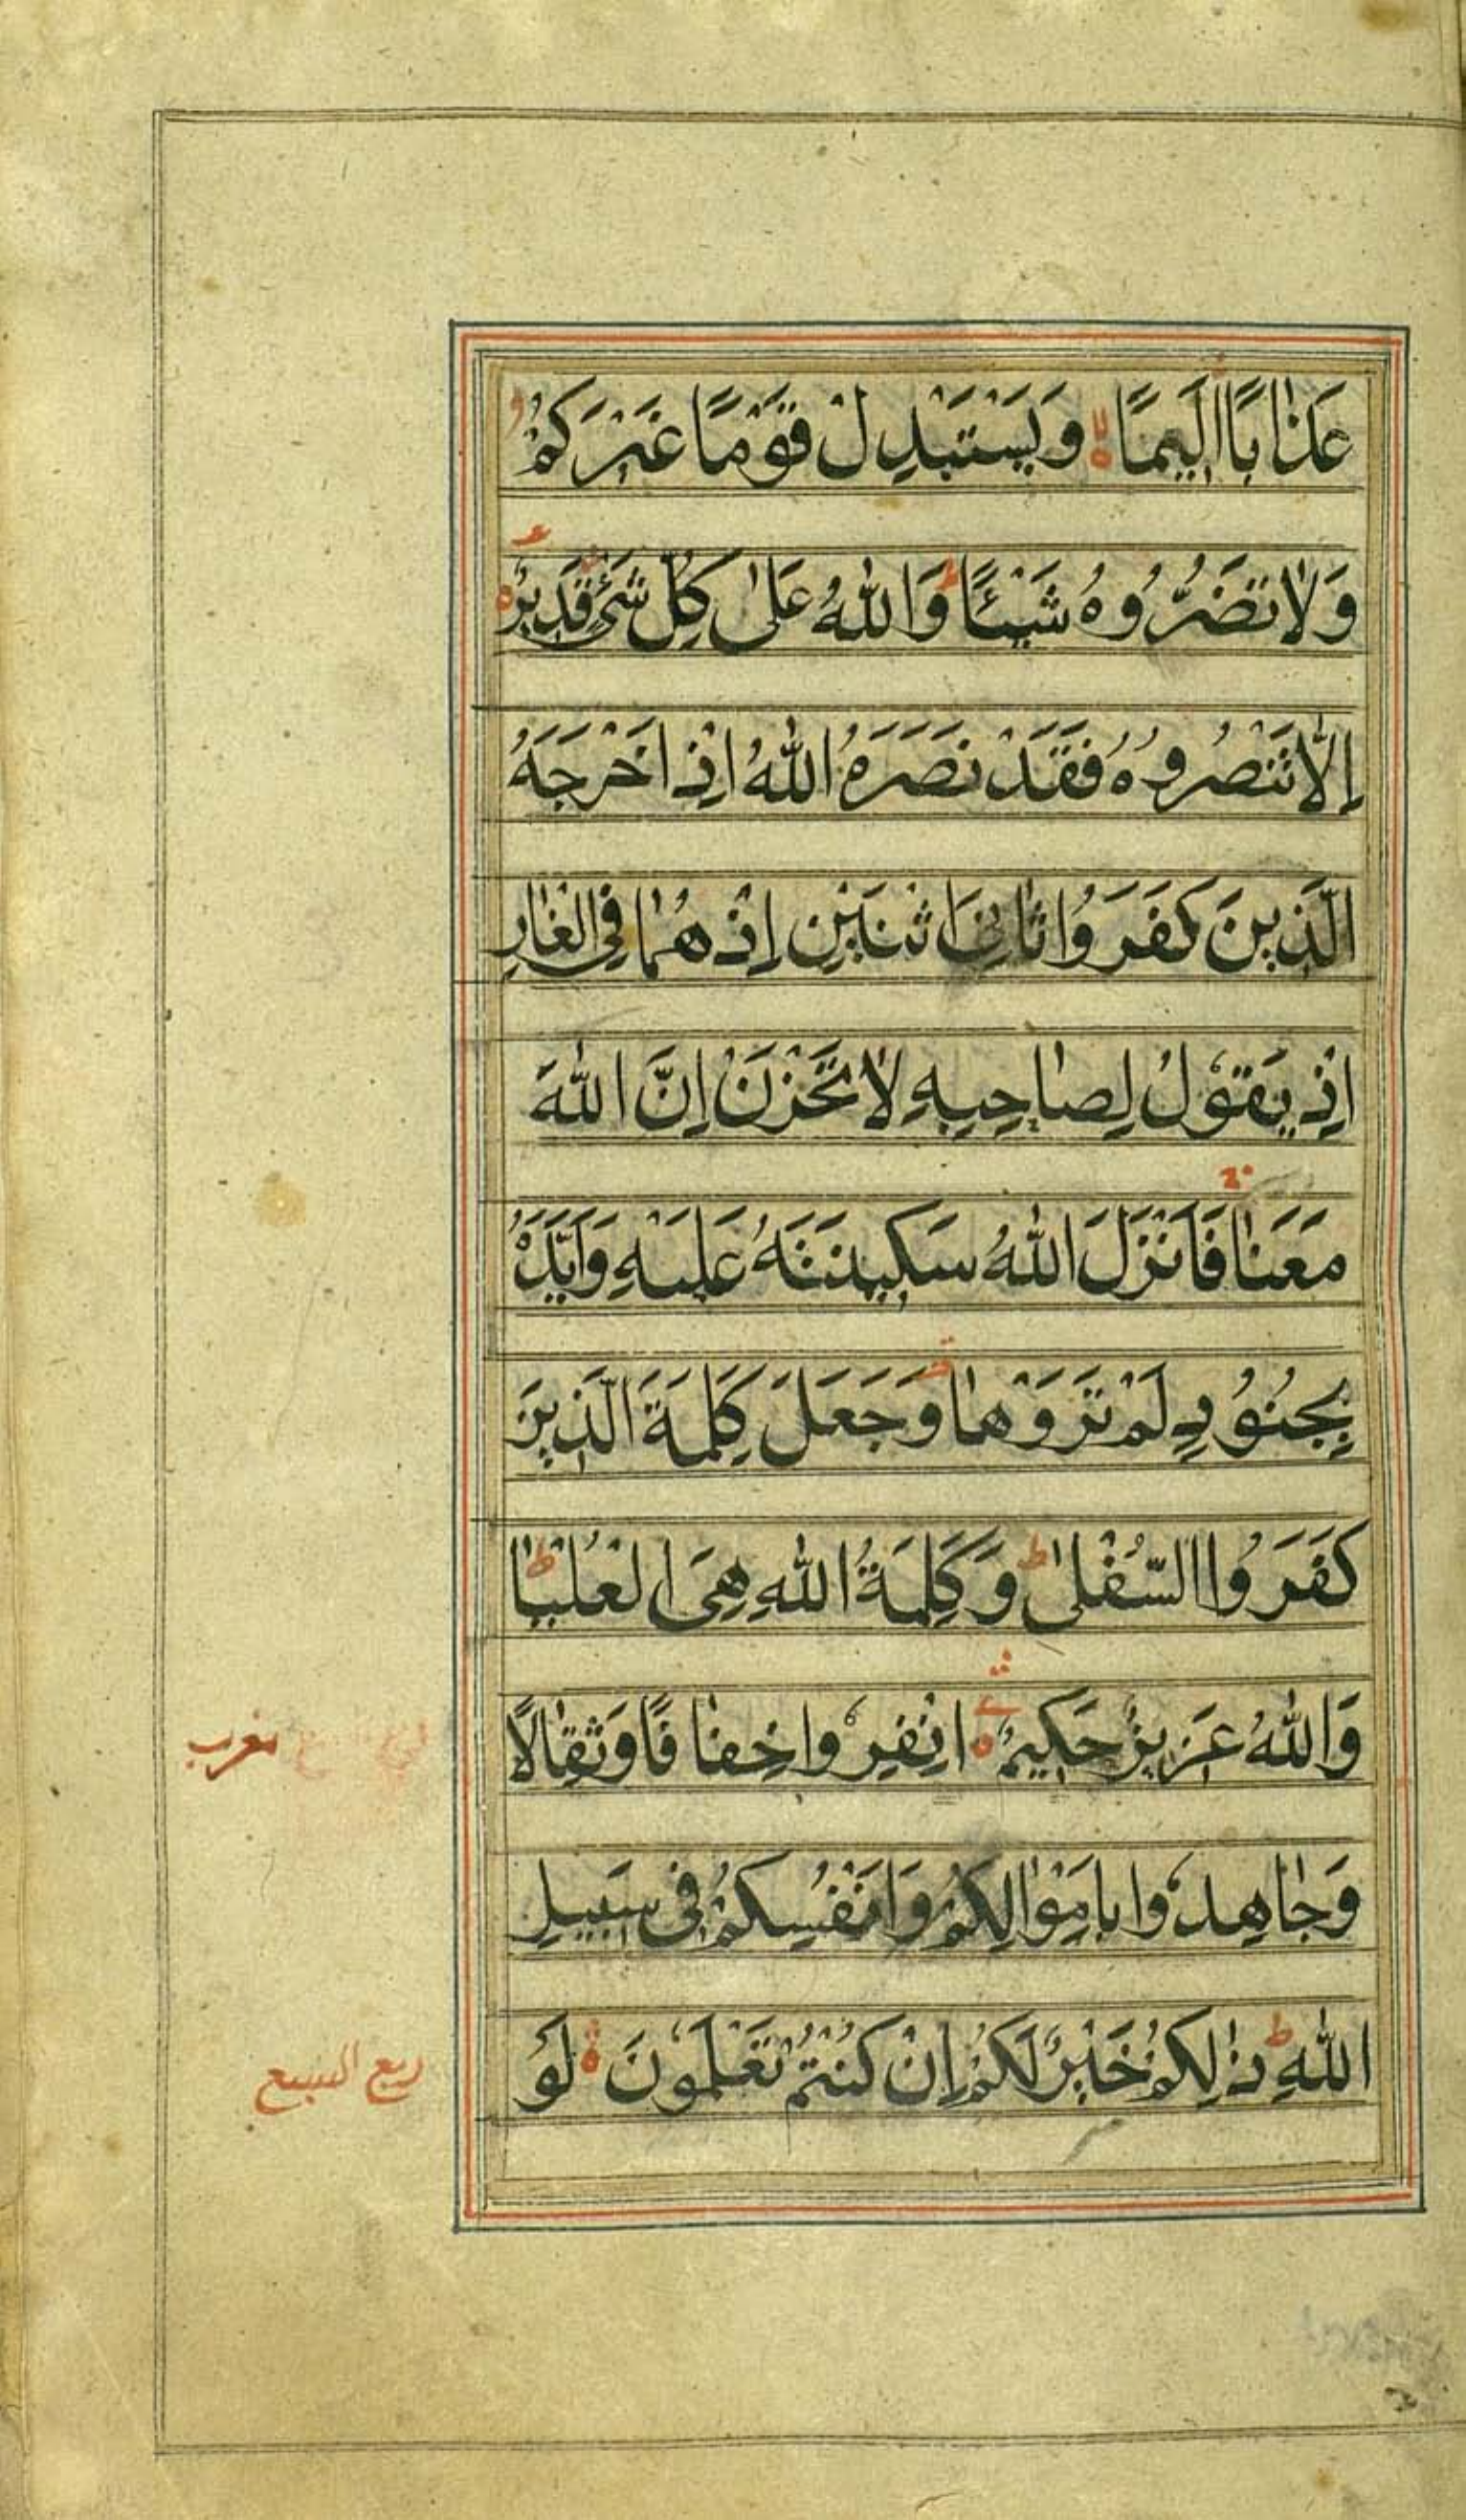 عَذَابًا اَلِيمًا وَيَسْتَبْدِلْ قَوْمًا غَيْرَكُمْ
وَلَا تَضُرُّوهُ شَيْئًا ط وَاللّٰهُ عَلٰى كُلِّ شَيْءٍ قَدِيرٌ
اِلَّا تَنْصُرُوهُ فَقَدْ نَصَرَهُ اللّٰهُ اِذْ اَخْرَجَهُ
الَّذِينَ كَفَرُوا ثَانِيَ اثْنَيْنِ اِذْ هُمَا فِي الْغَارِ
اِذْ يَقُولُ لِصَاحِبِهِ لَا تَحْزَنْ اِنَّ اللّٰهَ
مَعَنَا فَاَنْزَلَ اللّٰهُ سَكِينَتَهُ عَلَيْهِ وَاَيَّدَهُ
بِجُنُودٍ لَمْ تَرَوْهَا وَجَعَلَ كَلِمَةَ الَّذِينَ
كَفَرُوا السُّفْلٰى ط وَكَلِمَةُ اللّٰهِ هِيَ الْعُلْيَا ط
وَاللّٰهُ عَزِيزٌ حَكِيمٌ اِنْفِرُوا خِفَافًا وَثِقَالًا
مغرب
وَجَاهِدُوا بِاَمْوَالِكُمْ وَاَنْفُسِكُمْ فِي سَبِيلِ
اللّٰهِ ط ذٰلِكُمْ خَيْرٌ لَكُمْ اِنْ كُنْتُمْ تَعْلَمُونَ لَوْ
ربع السبع